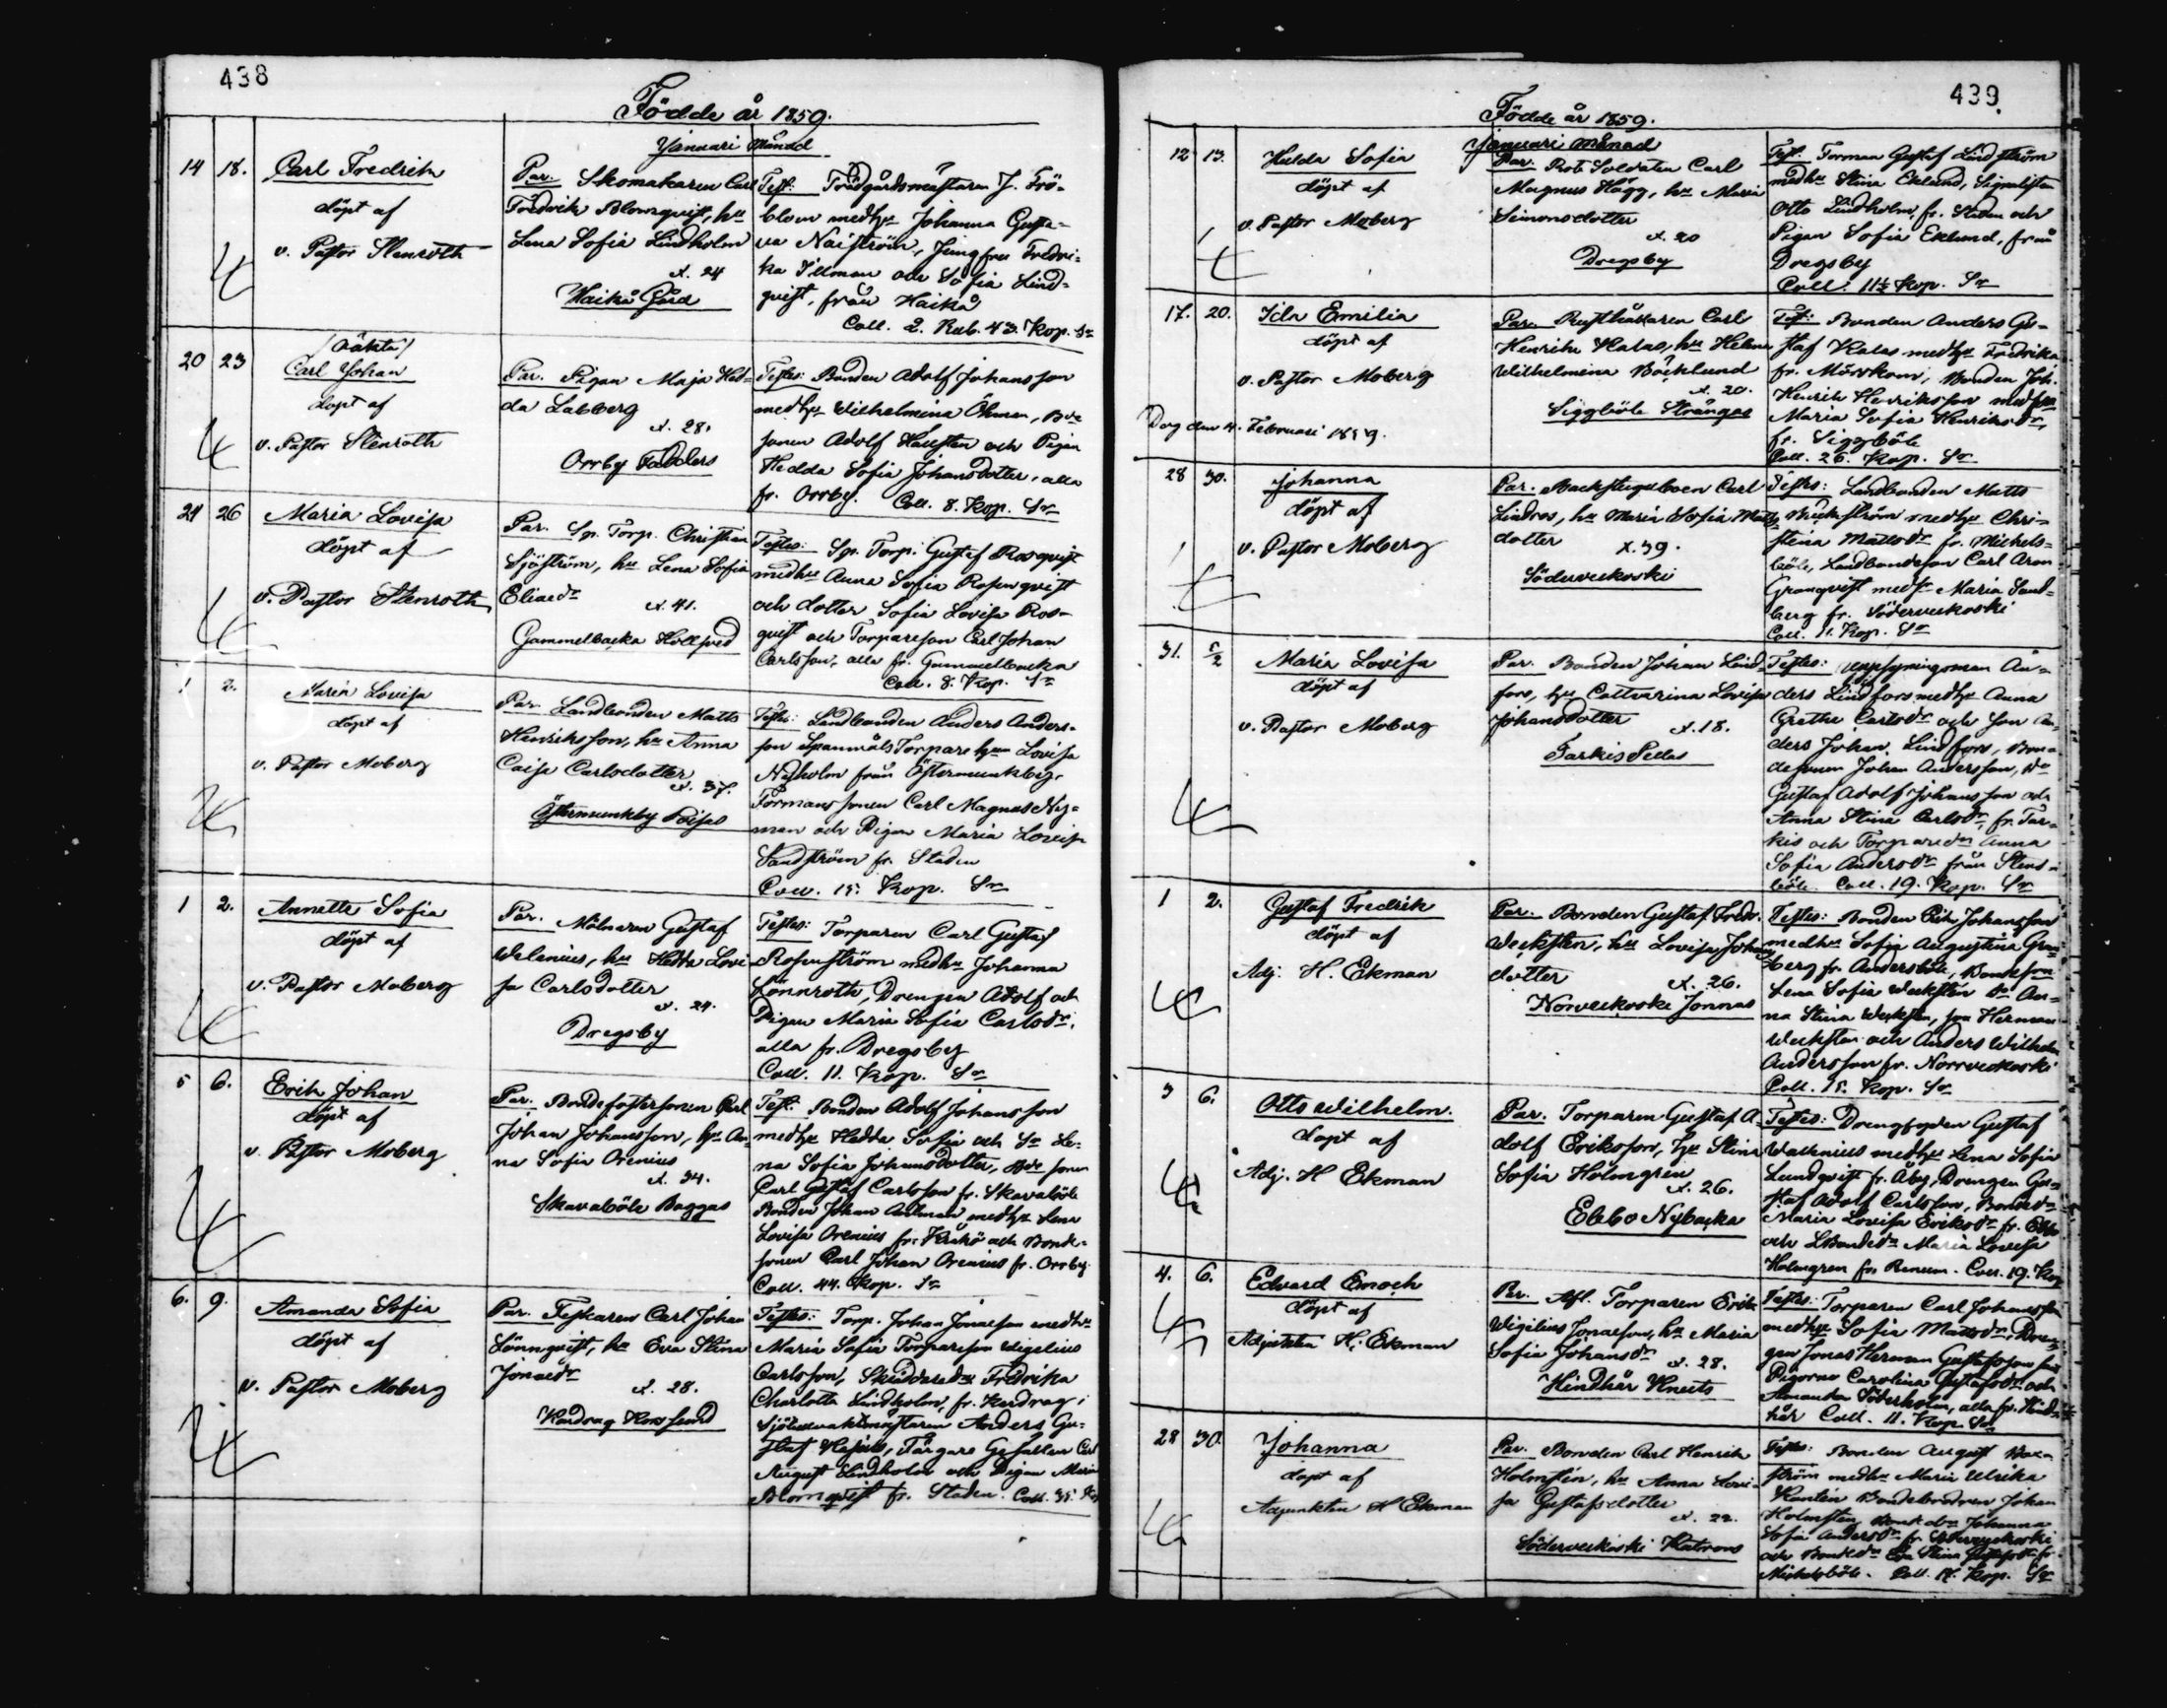 438
Födde år 1859.
Januari Månad
14 18. Carl Fredrik
döpt af
v. Pastor Stenroth
Par. Skomakaren Carl
Fredrik Blomqvist, hu
Lena Sofia Lindholm
x. 24
Haikå Gård
Test: Trädgårdsmästaren J. Frö-
blom med hu Johanna Gusta-
va Naiström, Jungfru Fredri-
ka Tillman och Sofia Lind-
qvist, från Haikå
Coll. 2. Rub. 43. Kop. Sr
20 23 (Oäkta)
Carl Johan
döpt af
v. Pastor Stenroth
Par. Pigan Maja Hed-
da Labberg
x. 28.
Orrby Fadders
Testes: Bonden Adolf Johansson
med hu Wilhelmina Öhman, Bde
sonen Adolf Hallsten och Pigan
Hedda Sofia Johansdotter, alla
fr. Orrby. Coll. 8. Kop. Sr
24 26 Maria Lovisa
döpt af
v. Pastor Stenroth
Par. Sp. Torp. Christian
Sjöström, hu Lena Sofia
Eliaedr
x. 41.
Gammelbacka
Testes: Sp. Torp. Gustaf Rosqvist
med hu Anna Sofia Rosenqvist
och dotter Sofia Lovisa Ros-
qvist och Torpareson Carl Johan
Carlsson, alla fr. Gammelbacka
Coll. 8. Kop. Sr
1 2. Maria Lovisa
döpt af
v. Pastor Moberg
Par. Landbonden Matts
Henriksson, hu Anna
Caisa Carlsdotter
x. 37.
Östermunkby
Testes: Landbonden Anders Anders-
son Spanmåls Torpare hu Lovisa
Nyholm från Östermunkby,
Formans sonen Carl Magnus Ny-
man och Pigan Maria Lovisa
Sandström fr. Staden
Coll. 15. Kop. Sr
1 2. Annette Sofia
döpt af
v. Pastor Moberg
Par. Mölnaren Gustaf
Welenius, hu Hedda Lovi-
sa Carlsdotter
x. 24.
Dregsby
Testes: Torparen Carl Gustaf
Rosenström med hu Johanna
Lönnroth, Drengen Adolf och
Pigan Maria Sofia Carlsdr,
alla fr. Dregsby
Coll. 11. Kop. Sr
5 6. Erik Johan
döpt af
v. Pastor Moberg
Par. Bondefostersonen Carl
Johan Johansson, hu An-
na Sofia Orenius
x. 34.
Skavaböle Baggas
Test. Bonden Adolf Johansson
med hu Hedda Sofia och Dr Le-
na Sofia Johansdotter, Bde sonen
Carl Gustaf Carlsson fr. Skavaböle
Bonden Johan Antman med hu Lena
Lovisa Orenius fr. Kråkö och Bonde-
sonen Carl Johan Orenius fr. Orrby.
Coll. 44. Kop. Sr
6. 9. Amanda Sofia
döpt af
v. Pastor Moberg
Par. Fiskaren Carl Johan
Lönnqvist, hu Eva Stina
Jonaedr
x. 28.
Kardrag
Testes: Torp. Johan Jonaeson med hu
Maria Sofia Torpareson Wigelius
Carlsson, Skräddaredr Fredrika
Charlotta Lindholm, fr. Kardrag,
Anders Gu-
staf Färgare Gesällen Carl
August Lindholm och Pigan Maria
Blomqvist fr. Staden. Coll. 35. Kop
439.
Födde år 1859.
Januari Månad
12 13. Hulda Sofia
döpt af
v. Pastor Moberg
Par. Rote Soldaten Carl
Magnus Hägg, hu Maria
Simonsdotter
x. 20
Dregsby
Test. Forman Gustaf Lindström
med hu Stina Eklund, Signalisten
Otto Lindholm, fr. Staden och
Pigan Sofia Eklund, från
Dregsby
Coll. 11½ Kop. Sr
17. 20. Ida Emilia
döpt af
v. Pastor Moberg
Par. Rusthållaren Carl
Henrik Kalas, hu Helena
Wilhelmina Böcklund
x. 20.
Siggböle Strångas
Test: Bonden Anders Gu-
staf Kalas med hu Fredrika
fr. Mörskom, Bonden Joh.
Henrik Henriksson med hu
Maria Sofia Henriksdr,
fr. Siggböle
Coll. 26. Kop. Sr
Dog den 4. Februari 1859.
28 30. Johanna
döpt af
v. Pastor Moberg
Par. Backstugubon Carl
Lindros, hu Maria Sofia Matts
dotter
x. 39.
Söderveckoski
Testes: Landbonden Matts
Bäckström med hu Chri-
stina Mattsdr fr. Michels-
böle, Landbondeson Carl Aron
Granqvist med Maria Sand-
berg fr. Söderveckoski
Coll. 11. Kop. Sr
31. 5/2 Maria Lovisa
döpt af
v. Pastor Moberg
Par. Bonden Johan Lind-
fors, hu Catharina Lovisa
Johansdotter
x. 18.
Tarkis Pellas
Testes: Uppsyningsman An-
ders Lindfors med hu Anna
Greta Carlsdr och son An-
ders Johan Lindfors, Bon-
desonen Johan Andersson, Do
Gustaf Adolf Johansson och
Anna Stina Carlsdr, fr. Tar-
kis och Torparedr Anna
Sofia Andersdr från Stens-
böle. Coll. 19. Kop. Sr
1 2. Gustaf Fredrik
döpt af
Adj. H. Ekman
Par. Bonden Gustaf Fredr.
Weckstén, hu Lovisa Johans
dotter
x. 26.
Norveckoski Jonnas
Testes: Bonden Erik Johansson
med hu Sofia Augustina Gran-
berg fr. Andersböle, Bondeson
Lena Sofia Weckstén Do An-
na Stina Weckstén, son Herman
Weckstén och Anders Wilhelm
Andersson fr. Norrveckoski
Coll. 15. Kop. Sr
3 6. Otto Wilhelm.
döpt af
Adj. H Ekman
Par. Torparen Gustaf A-
dolf Eriksson, hu Stina
Sofia Holmgren
x. 26.
Ebbo Nybacka
Testes: Gustaf
Wallenius med hu Lena Sofia
Lundqvist fr. Åby, Drengen Gu-
staf Adolf Carlsson, Bondedr
Maria Lovisa Eriksdr fr. Ebbo
och LBondedr Maria Lovisa
Holmgren fr. Renum. Coll. 19. Kop
4. 6. Edvard Enoch
döpt af
Adjunkten H. Ekman
Par. Afl. Torparen Erik
Wigilius Jonaeson, hu Maria
Sofia Johansdr
x. 28.
Hindhår Knuts
Testes: Torparen Carl Johansson
med hu Sofia Mattsdr, Dren-
gen Jonas Herman Gustafsson
Pigorna Carolina Gustafsdr och
Amanda Söderholm, alla fr. Hind-
hår Coll. 11. Kop. Sr
28 30. Johanna
döpt af
Adjunkten H Ekman
Par. Bonden Carl Henrik
Holmstén, hu Anna Lovi-
sa Gustafsdotter
x. 22.
Söderveckoski Katrons
Testes: Bonden August Back-
ström med hu Maria Ulrika
Bondebrodren Johan
Holmstén, Johanna
Sofia Andersdr fr. Söderveckoski
och Bondedr Eva Stina Gustafsdr fr.
Michelsböle. Coll. 17. Kop. Sr